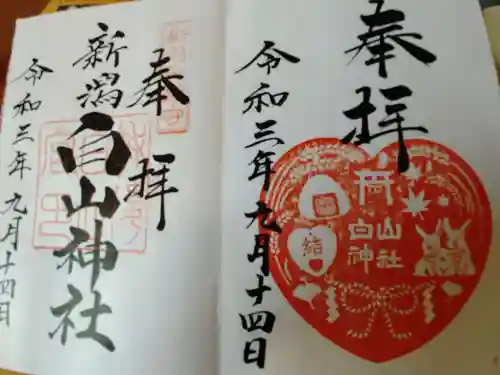 奉拝
令和三年九月十四日
白山
神社
結
奉拝
新潟白山神社
令和三年九月十四日